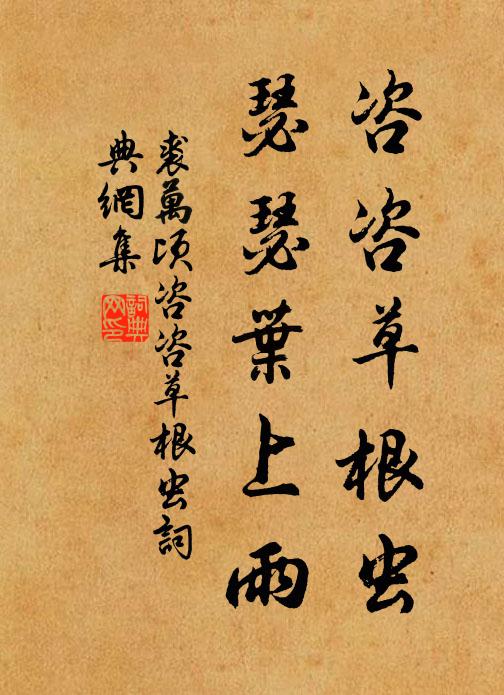 咨咨草根虫
瑟瑟葉上雨
裘萬頃咨咨草根虫詞
典網集
詞典網印